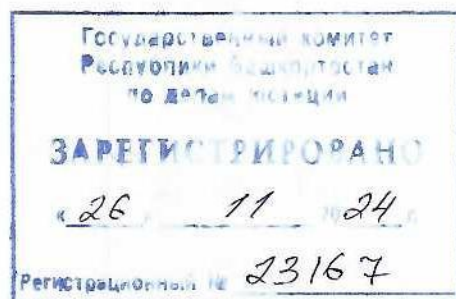 Государственный комитет
Республики Башкортостан
по делам юстиции
ЗАРЕГИСТРИРОВАНО
« 26 » 11 2024 г.
Регистрационный № 23167